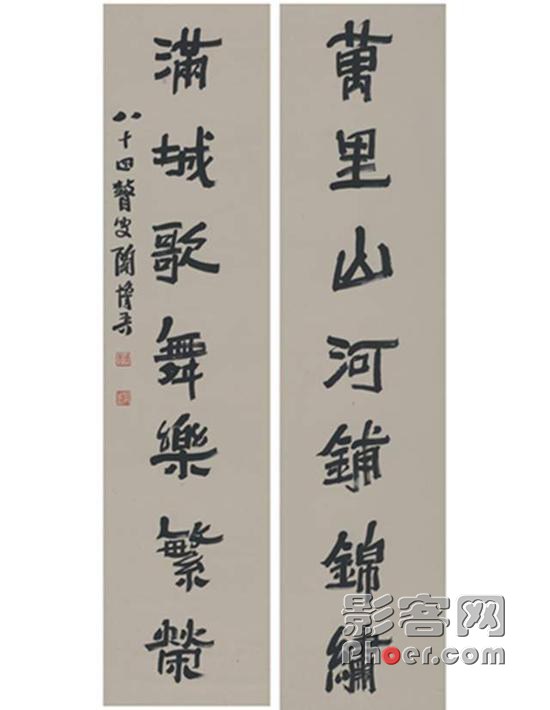 萬里山河鋪錦繡
滿城歌舞樂繁榮
八十四瞽叟陶博吾
影客网
Phoer.com